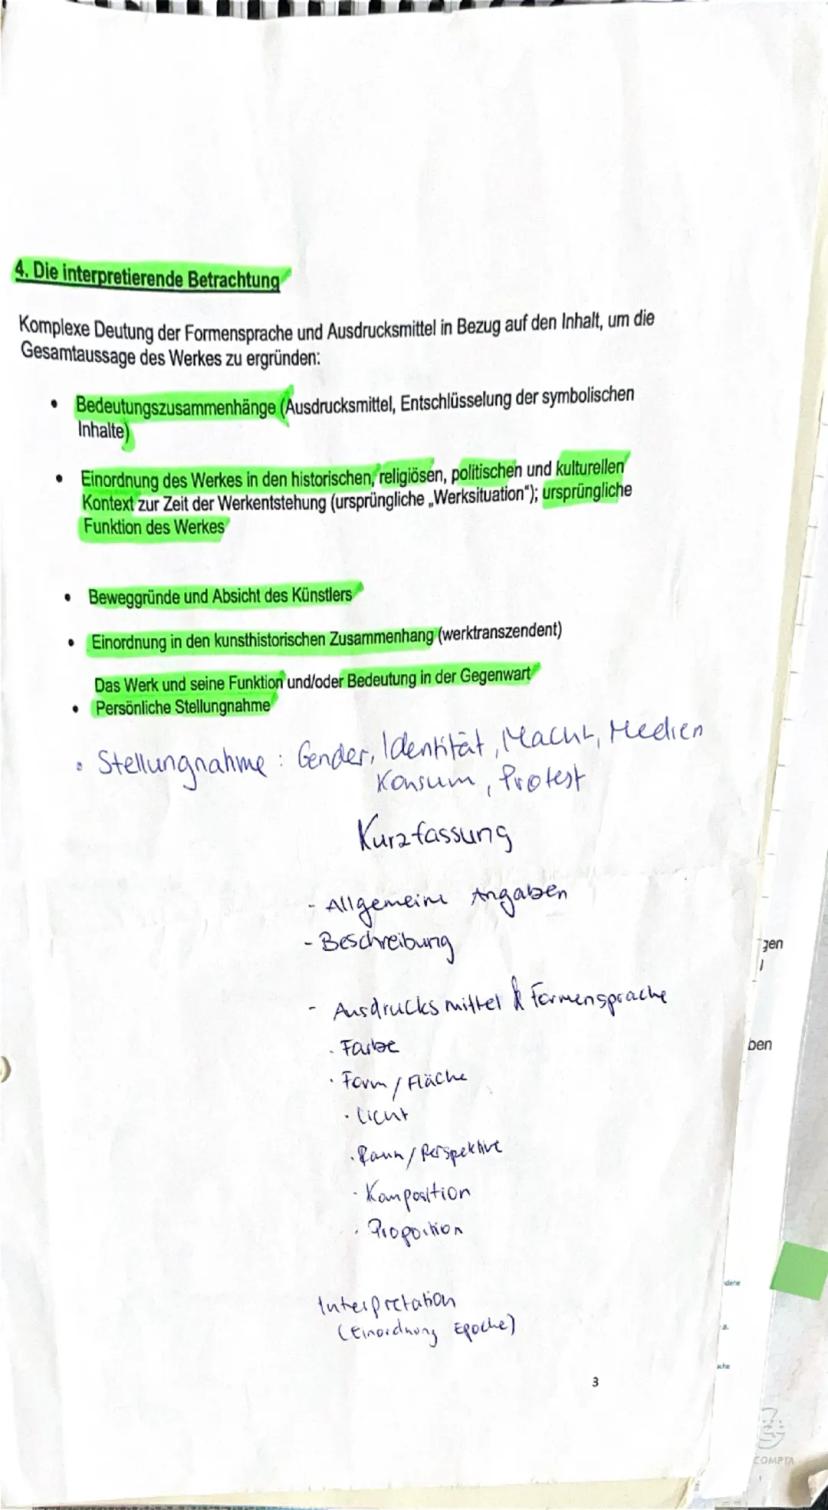 4. Die interpretierende Betrachtung
Komplexe Deutung der Formensprache und Ausdrucksmittel in Bezug auf den Inhalt, um die
Gesamtaussage des Werkes zu ergründen:
• Bedeutungszusammenhänge (Ausdrucksmittel, Entschlüsselung der symbolischen
Inhalte)
• Einordnung des Werkes in den historischen, religiösen, politischen und kulturellen
Kontext zur Zeit der Werkentstehung (ursprüngliche „Werksituation"); ursprüngliche
Funktion des Werkes
• Beweggründe und Absicht des Künstlers
• Einordnung in den kunsthistorischen Zusammenhang (werktranszendent)
Das Werk und seine Funktion und/oder Bedeutung in der Gegenwart
• Persönliche Stellungnahme
• Stellungnahme: Gender, Identität, Macht, Medien
Konsum, Protest
Kurzfassung
- Allgemeine Angaben
- Beschreibung
- Ausdrucksmittel & Formensprache
· Farbe
· Form / Fläche
· Licht
· Raum / Perspektive
· Komposition
· Proportion
Interpretation
(Einordnung Epoche)
3
gen
ben
COMPTA